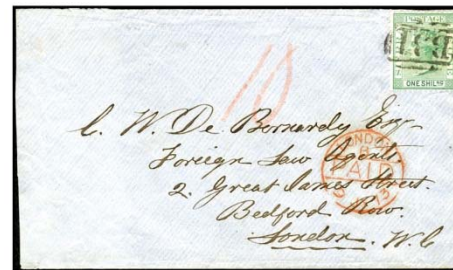 POSTAGE
ONE SHILG
C. W. De Bernardy Esq
Foreign Law Agents
2. Great James Street.
Bedford Row.
London. W.C
LONDON
PAID